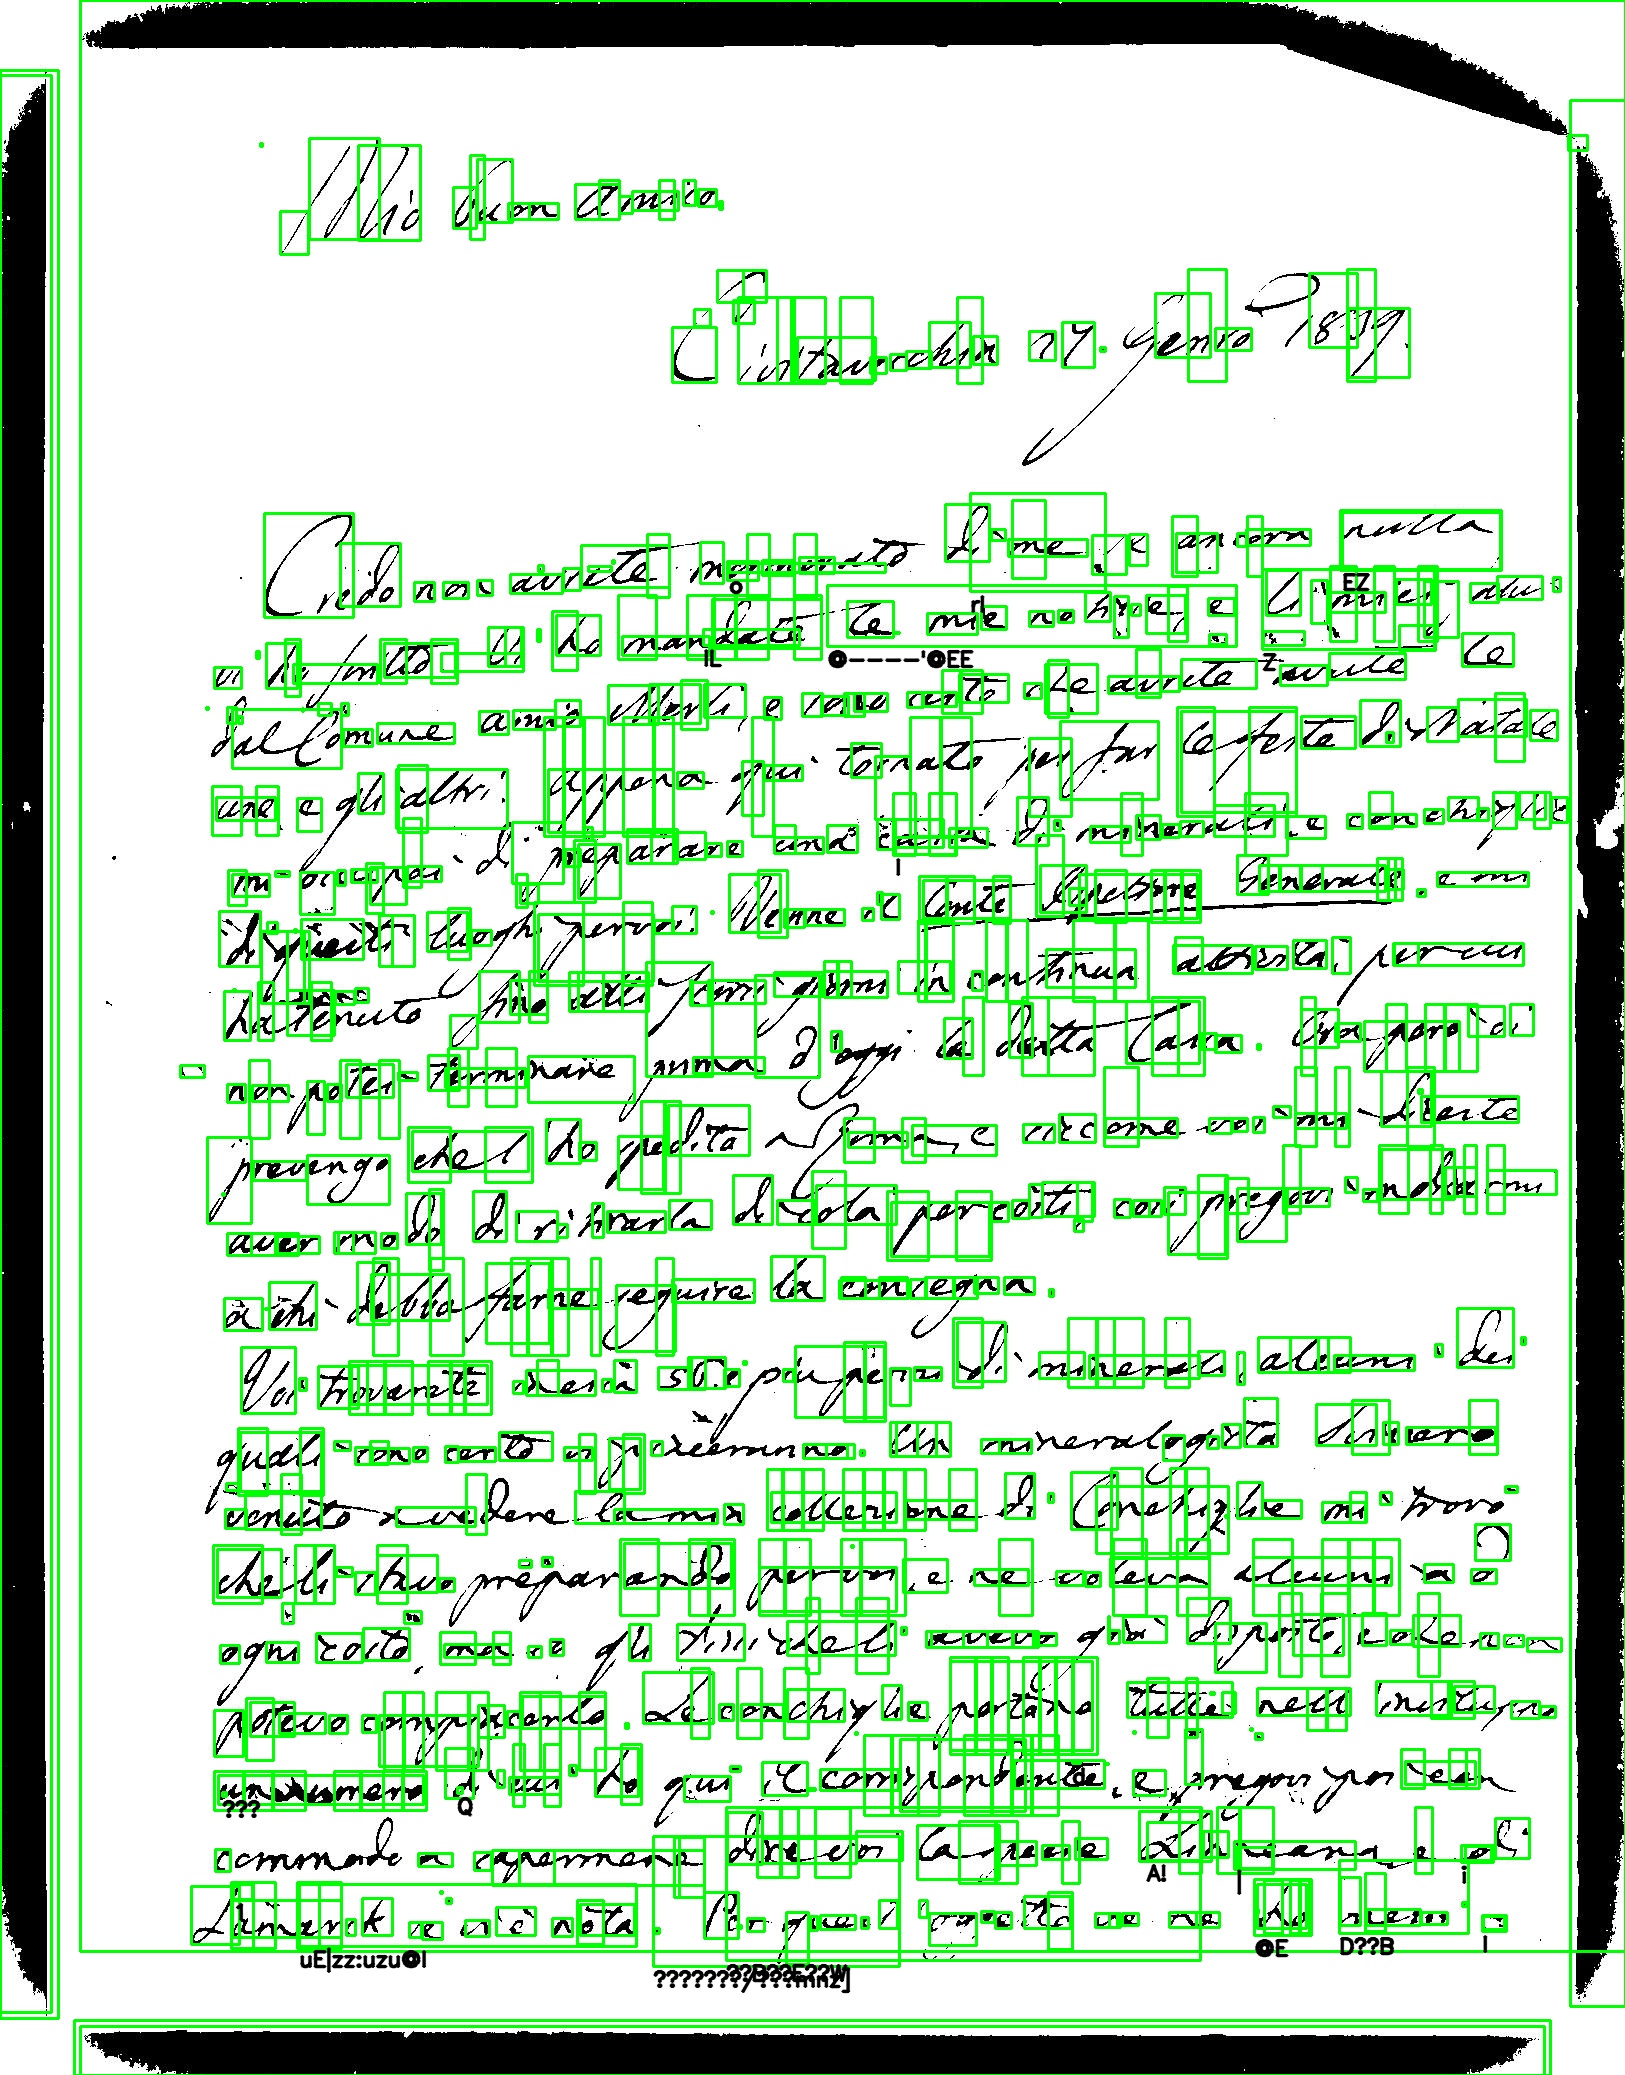 Mio buon Amico,
Civitavecchia 27. Genro 1839.
Credo non avrete di me se ancora nulla
vi ho Vi ho mandato le mie notizie, e li miei
dal Comune amico e sono certo che avrete avute le
une e gli altri. Appena qui tornato per far le feste di Natale
m'occupai di preparare una cassa di minerali, e conchiglie
di questi luoghi per voi. Venne il Conte Generale, e mi
ha tenuto fino a in continua per cui
non potei terminare prima d'oggi la detta Cassa. Ora però
prevengo che l'ho spedita a Roma, e siccome voi mi diceste
aver modo di ritirarla di colà per costì, così pregovi indicarmi
a chi debba farne seguire la consegna.
Voi troverete in essa 50 e più pezzi di minerali, alcuni dei
quali sono certo vi piaceranno. Un mineralogista
venuto a vedere la mia collezione di Conchiglie mi trovò
che li stavo preparando per voi, e ne voleva alcuni a
ogni costo, ma gli dissi che li avevo già disposti, e che non
potevo compiacerlo. Le conchiglie portano tutte
un numero di cui ho qui il corrispondente, e pregovi poi con
commodo a sapermene dire voi la specie Linneana, e di
Lamarck Per ve ne ho messi